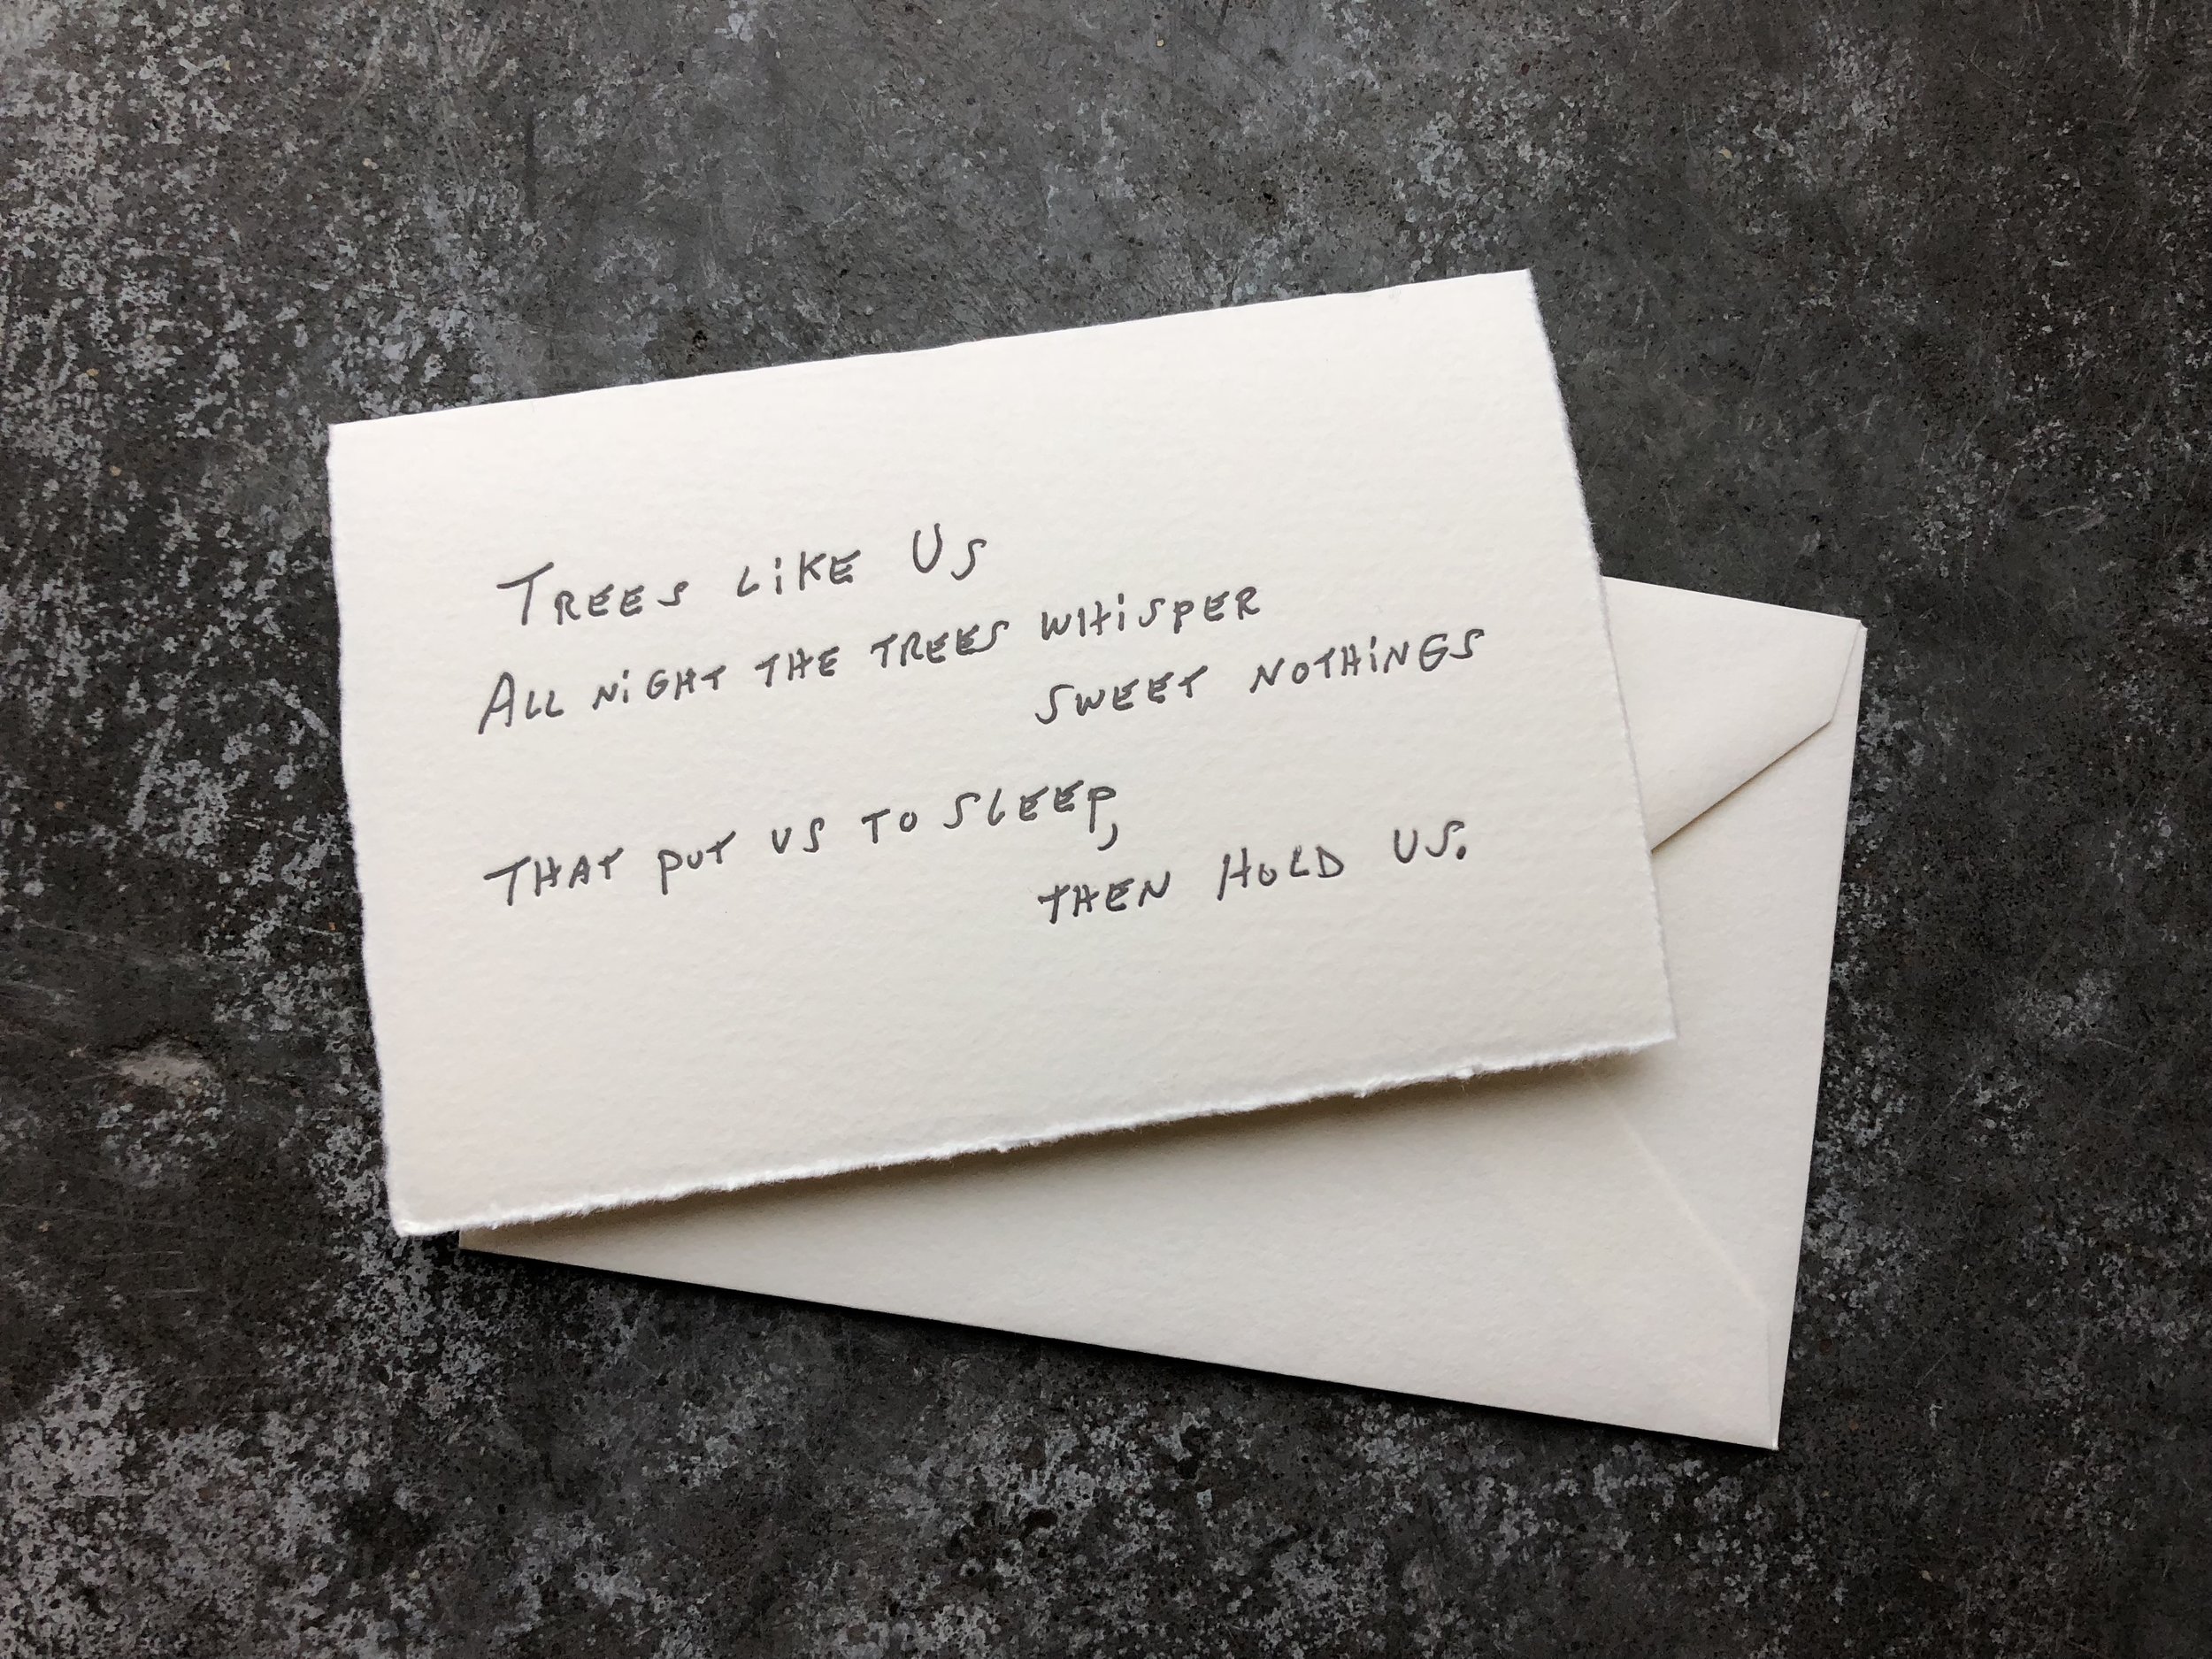 Trees like Us
All night the trees whisper
sweet nothings
that put us to sleep,
then hold us.